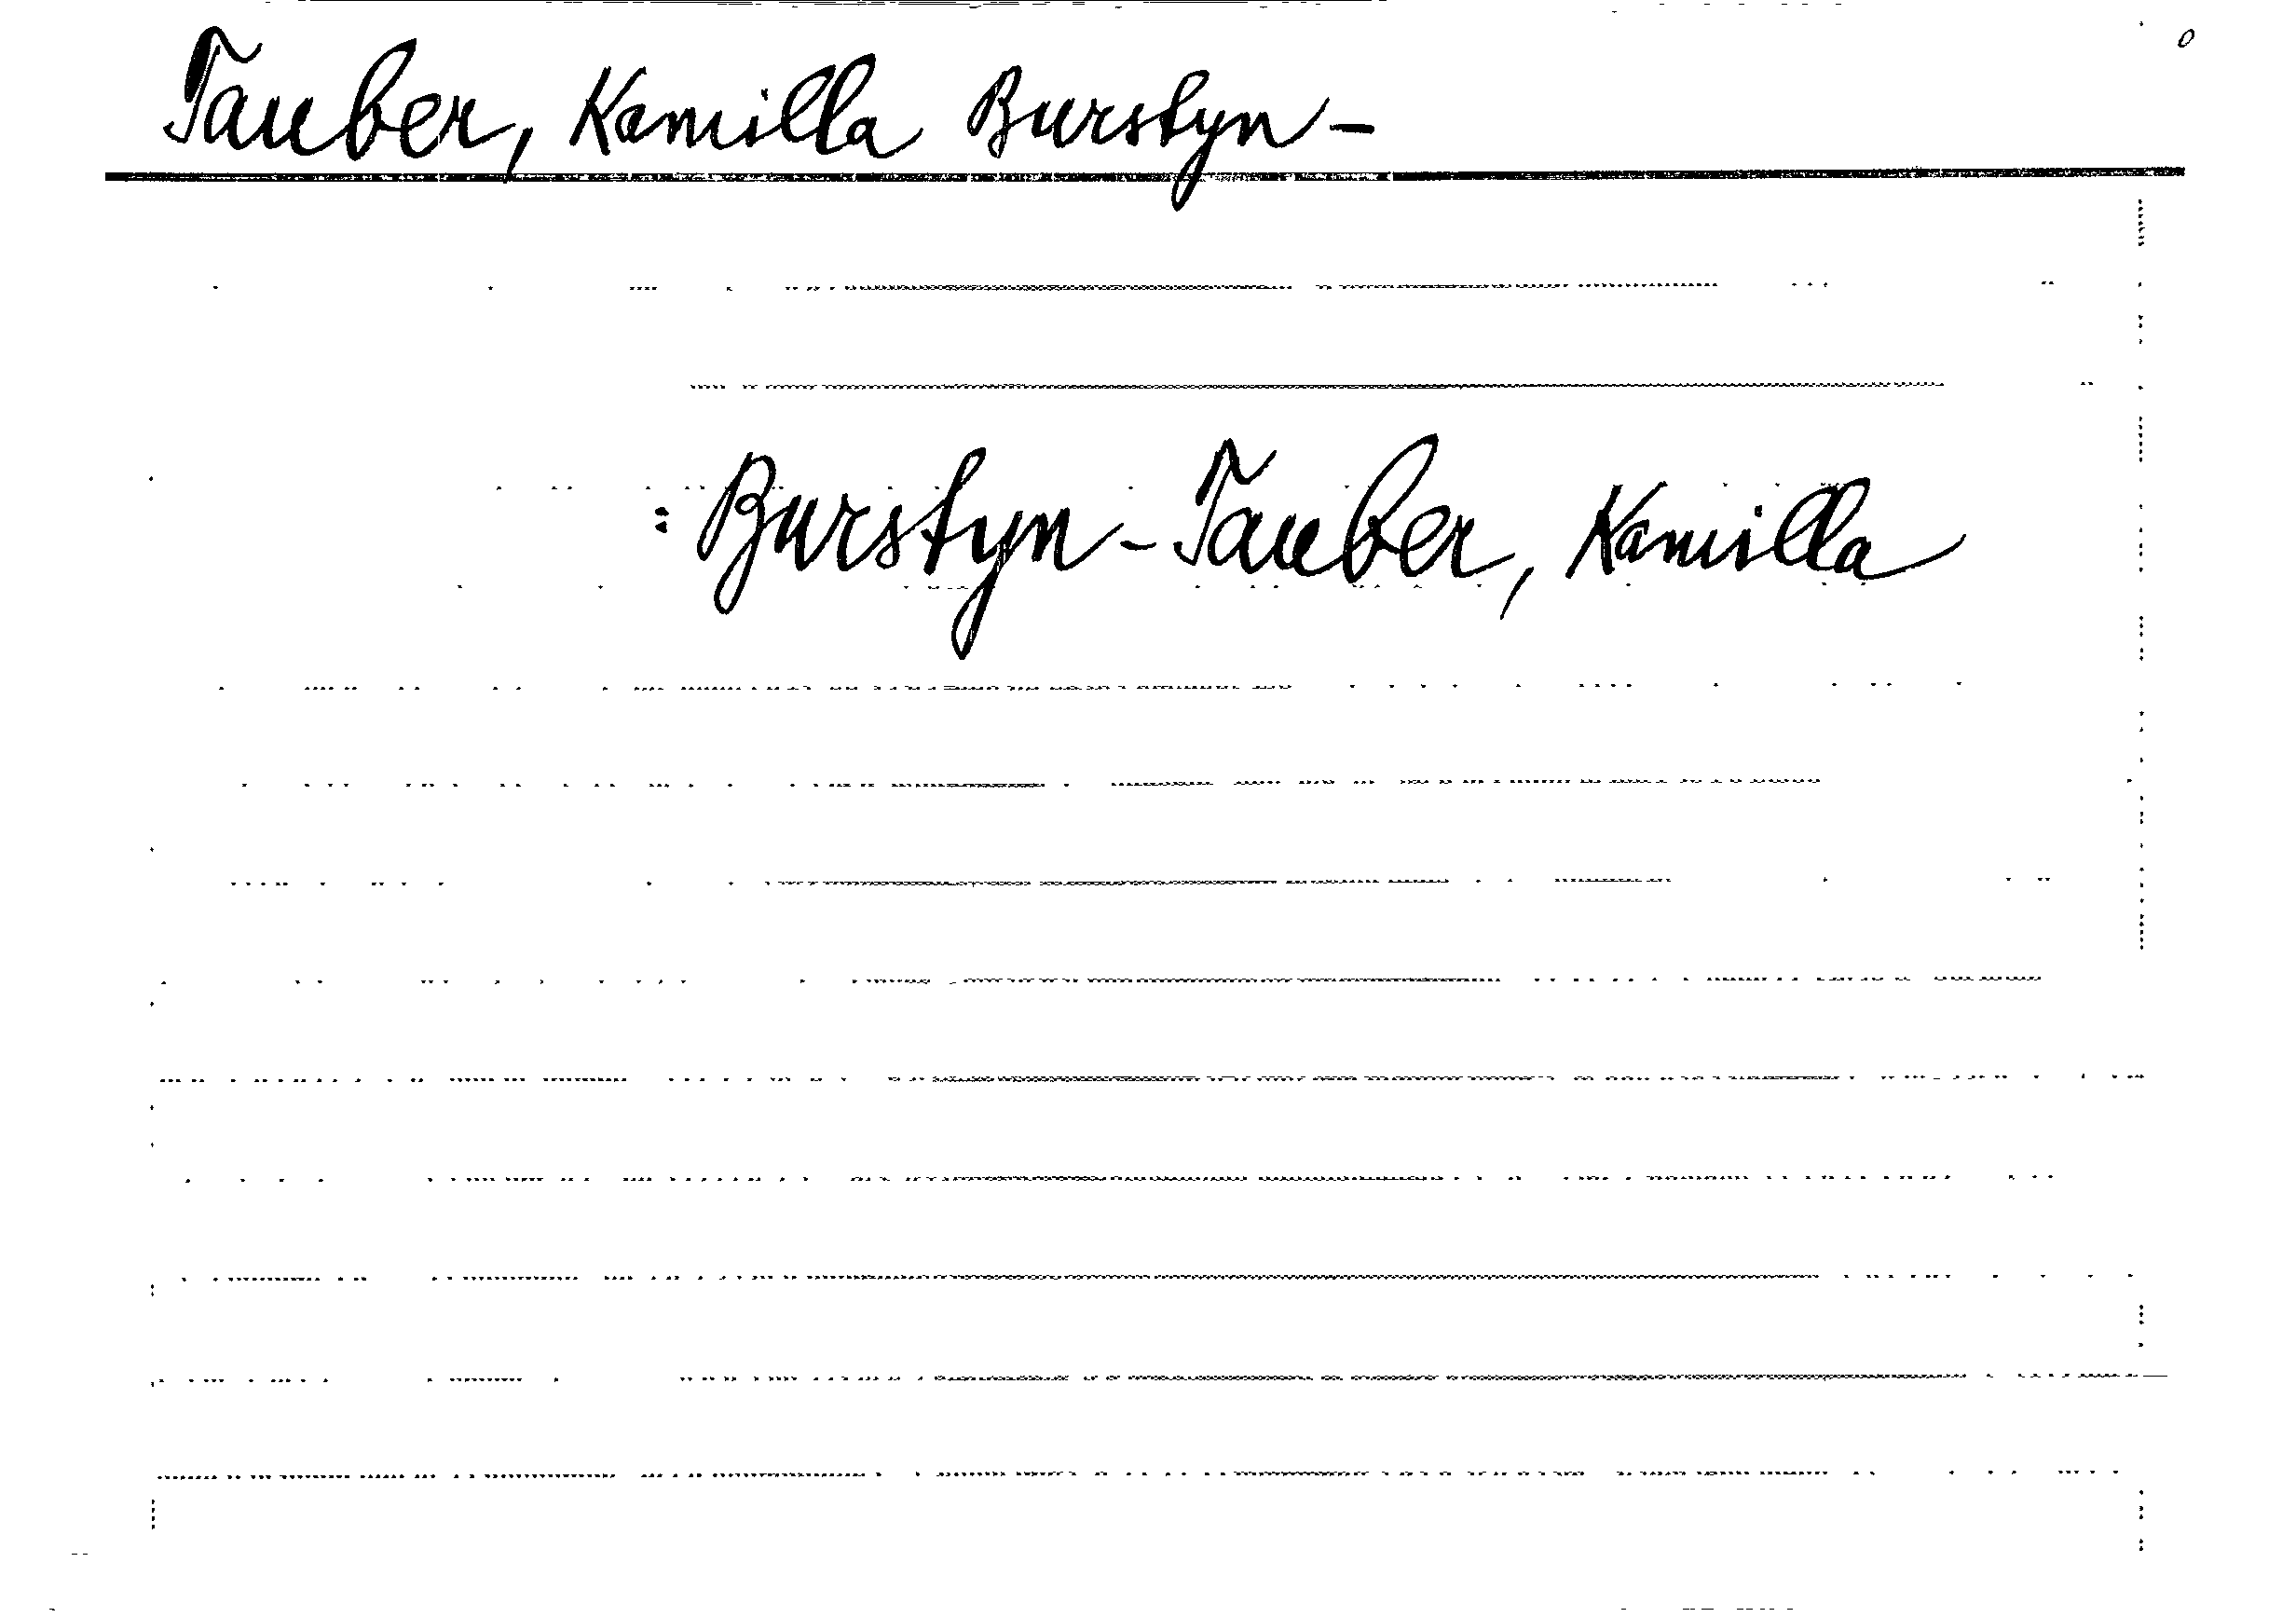 Tauber, Kamilla Burstyn-
: Burstyn-Tauber, Kamilla